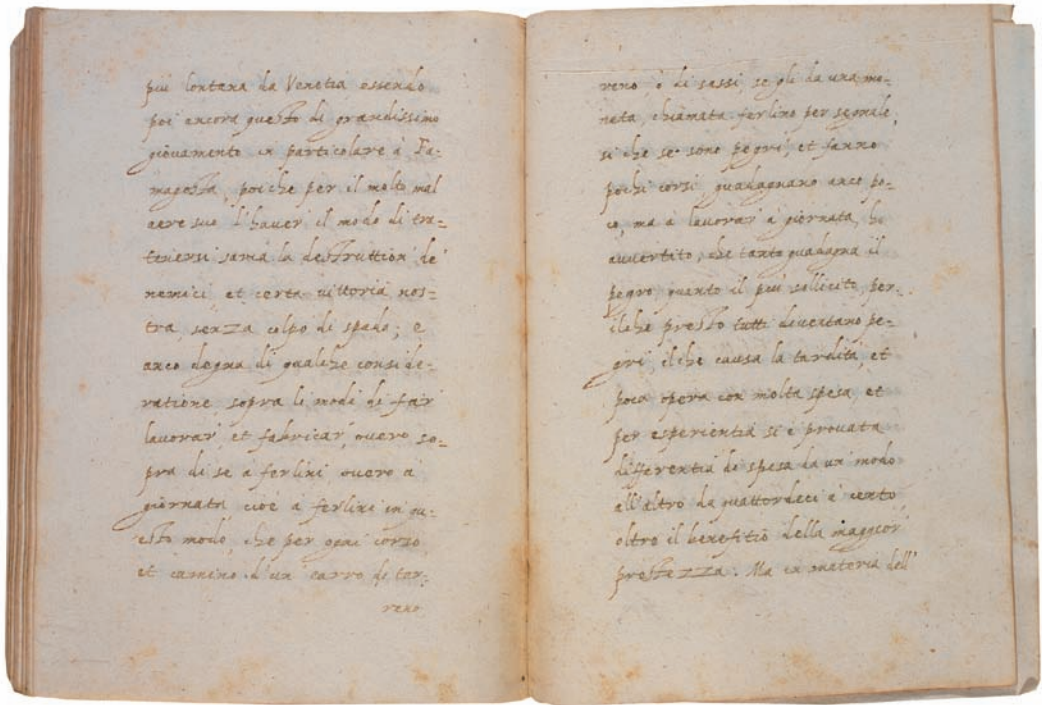 più lontana da Venetia, essendo
poi ancora questo di grandissimo
giovamento in particolare à Fa-
magosta, poiche per il molto mal
aere suo l'haver il modo di tra-
tenersi saria la destruttion de
nemici et certa vittoria nos-
tra, senza colpo di spada; e
anco degna di qualche conside-
ratione sopra li modi di far
lavorar, et fabricar, overo so-
pra di se a ferlini overo a
giornata cioè a ferlini in qu-
esto modo, che per ogni corso
et camino d'un carro di ter-
reno
reno ò di sassi, se gli da una mo-
neta, chiamata ferlino per segnale,
si che se sono pegri, et fanno
pochi corsi, guadagnano anco po-
co, ma a lavorar a giornata, ho
avvertito, che tanto guadagna il
pegro, quanto il più sollicito, per-
ilche presto tutti diventano pe-
gri ilche causa la tardità, et
poca opera con molta spesa, et
per esperientia si è provata
differentia di spesa da un modo
all'altro da quattordeci à cento,
oltro il benefitio della maggior
prestezza. Ma in materia dell'